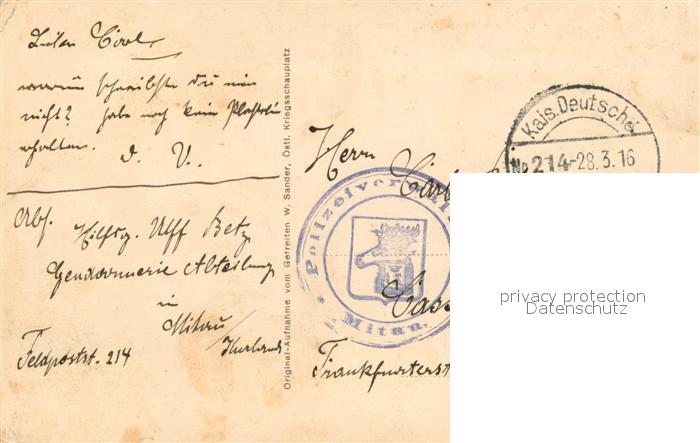 Lieber Carl,
warum schreibst du mir
nicht? habe noch kein
erhalten.
D. V.
Abs.
Hilfsg. Uff Betz
Gendarmerie Abteilung
in
Mitau/
Kurland
Feldpostst. 214
Original-Aufnahme vom Gefreiten W. Sander, Östl. Kriegsschauplatz
Herrn
Carl
Cass
Frankfurterst
Polizeiverwal
Mitau.
Kais. Deutsche
No 214-28.3.16
privacy protection
Datenschutz